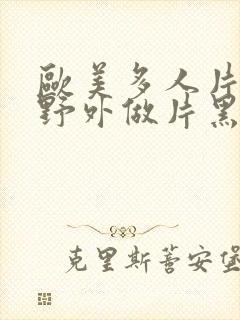 歐美多人片
野外做片黑
克里斯蒈安堡